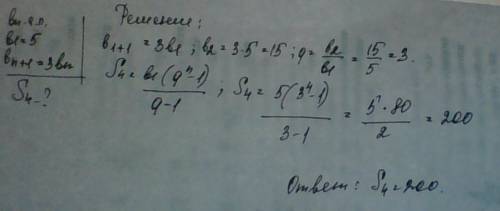 bn-г.п.
b1=5
bn+1=3bn
S4-?
Решение:
b1+1=3b1; b2=3·5=15; q=b2/b1=15/5=3.
S4=b1(q^n-1)/q-1; S4=5(3^4-1)/3-1=5·80/2=200
Ответ: S4=200.